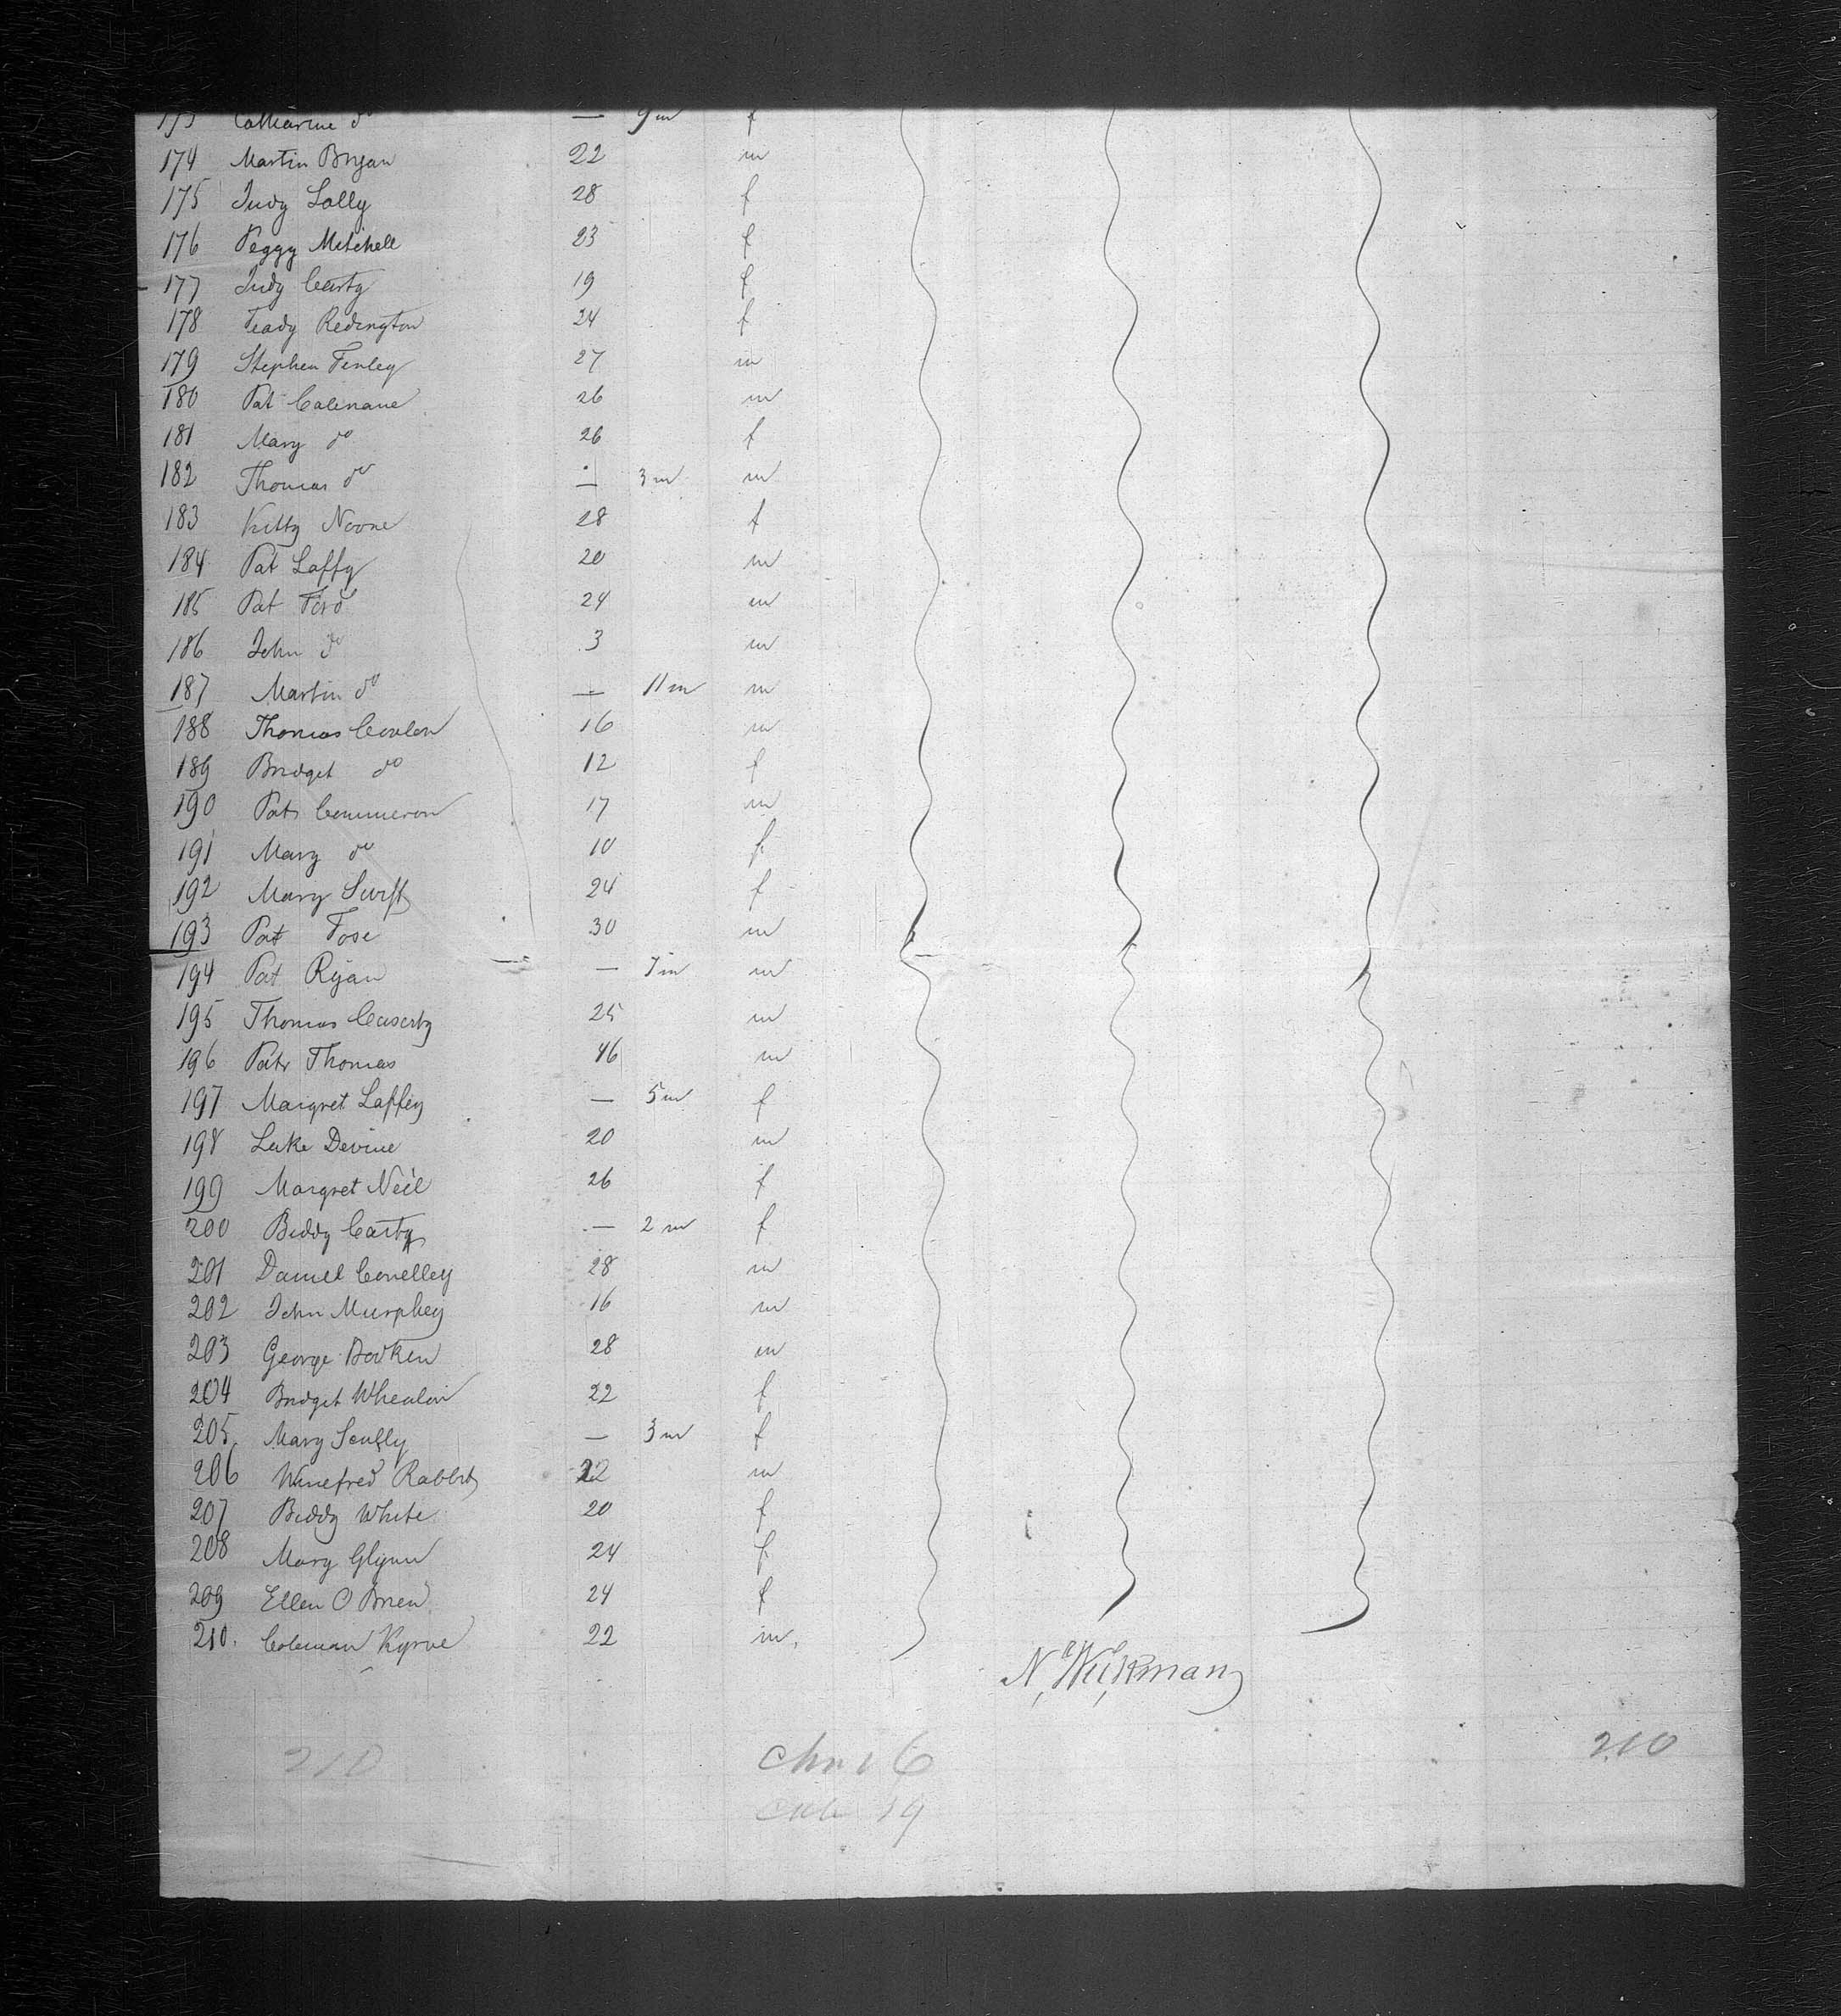 173 Catharine do — 9m f
174 Martin Bryan 22 m
175 Judy Lally 28 f
176 Peggy Mitchell 23 f
177 Judy Carty 19 f
178 Teady Redington 24 f
179 Stephen Finley 27 m
180 Pat Calinane 26 m
181 Mary do 26 f
182 Thomas do — 3m m
183 Kitty Noone 28 f
184 Pat Laffy 20 m
185 Pat Ford 24 m
186 John do 3 m
187 Martin do — 11m m
188 Thomas Conlon 16 m
189 Bridget do 12 f
190 Pat Commeron 17 m
191 Mary do 10 f
192 Mary Swift 24 f
193 Pat Fose 30 m
194 Pat Ryan — 7m m
195 Thomas Caserty 25 m
196 Patr Thomas 46 m
197 Margret Laffey — 5m f
198 Luke Devine 20 m
199 Margret Neil 26 f
200 Biddy Carty — 2m f
201 Daniel Conelley 28 m
202 John Murphey 16 m
203 George Bodken 28 m
204 Bridget Whealon 22 f
205 Mary Scully — 3m f
206 Winefred Rabbit 22 m
207 Biddy White 20 f
208 Mary Glynn 24 f
209 Ellen O Brien 24 f
210. Coleman Kyrve 22 m.
210 210
19